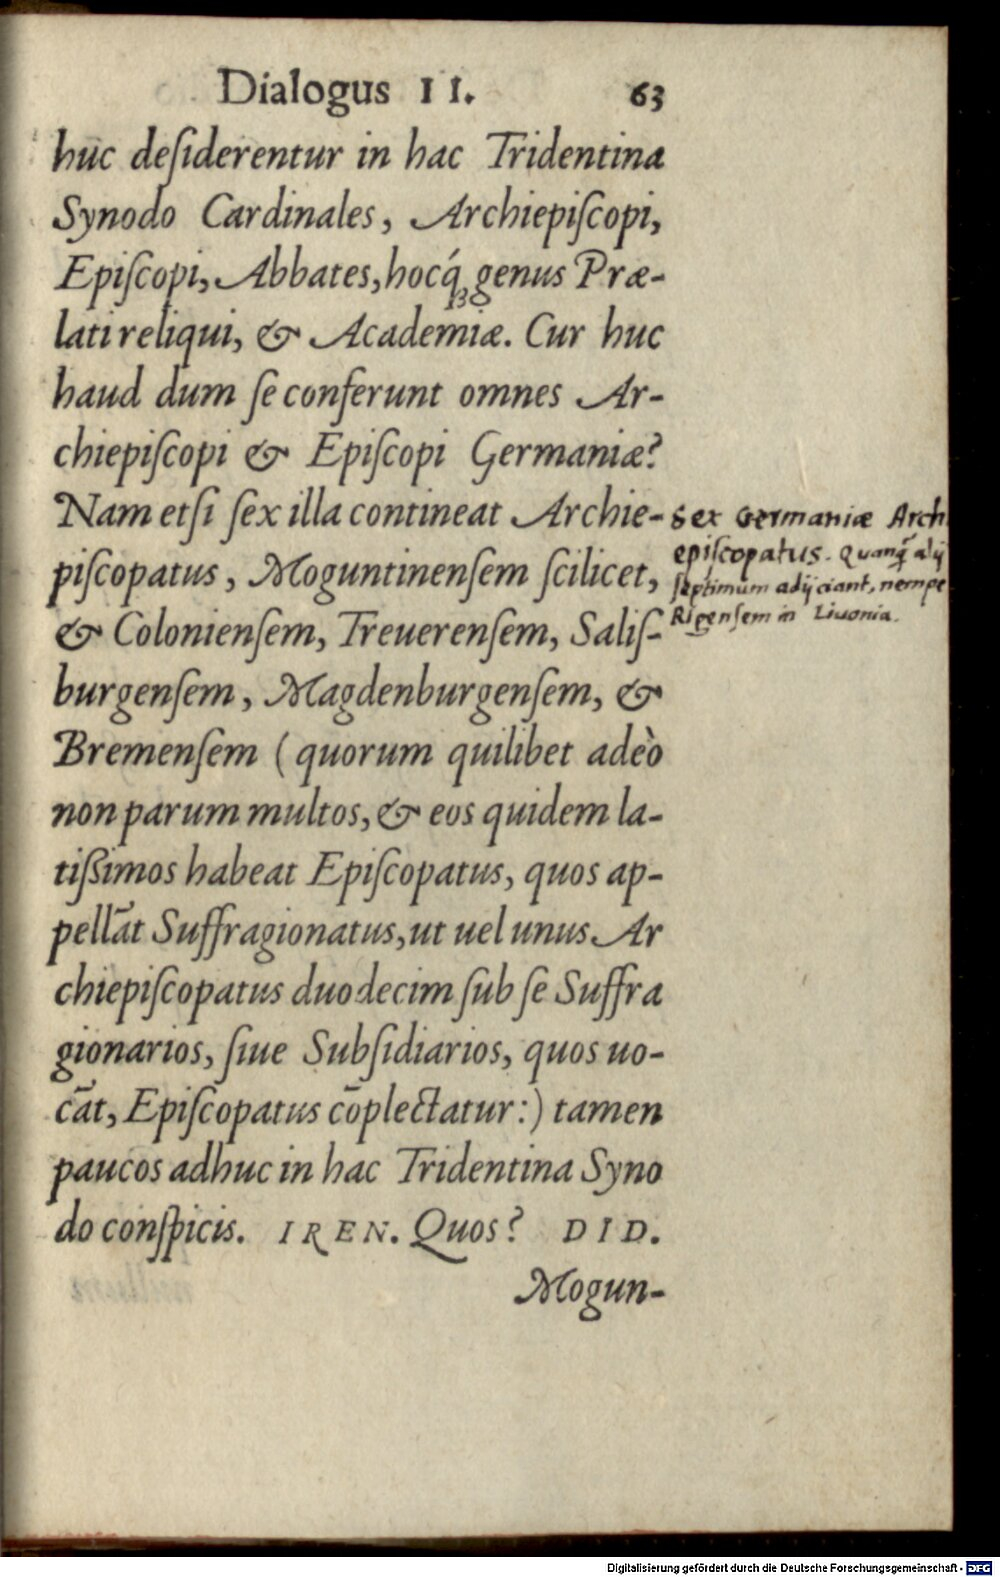 Dialogus II. 63
huc desiderentur in hac Tridentina
Synodo Cardinales, Archiepiscopi,
Episcopi, Abbates, hocq́ꝫ genus Præ-
lati reliqui, & Academiæ. Cur huc
haud dum se conferunt omnes Ar-
chiepiscopi & Episcopi Germaniæ?
Nam etsi sex illa contineat Archie-
piscopatus, Moguntinensem scilicet,
& Coloniensem, Treuerensem, Salis-
burgensem, Magdenburgensem, &
Bremensem (quorum quilibet adeò
non parum multos, & eos quidem la-
tißimos habeat Episcopatus, quos ap-
pellāt Suffragionatus, ut uel unus Ar
chiepiscopatus duodecim sub se Suffra
gionarios, siue Subsidiarios, quos uo-
cāt, Episcopatus cōplectatur:) tamen
paucos adhuc in hac Tridentina Syno
do conspicis. IREN. Quos? DID.
Mogun-
Sex Germaniæ Arch
episcopatus. Quanq̃ alij
septimum adijciant, nempe
Rigensem in Liuonia.